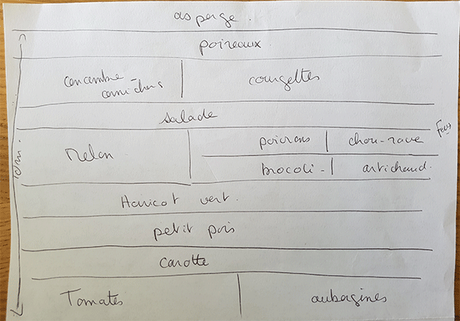 asperge.
poireaux
concombre cornichons
courgettes
salade
Melon
poivrons
chou-rave
brocoli.
artichaud.
Haricot vert.
petit pois
carotte
Tomates
aubergines